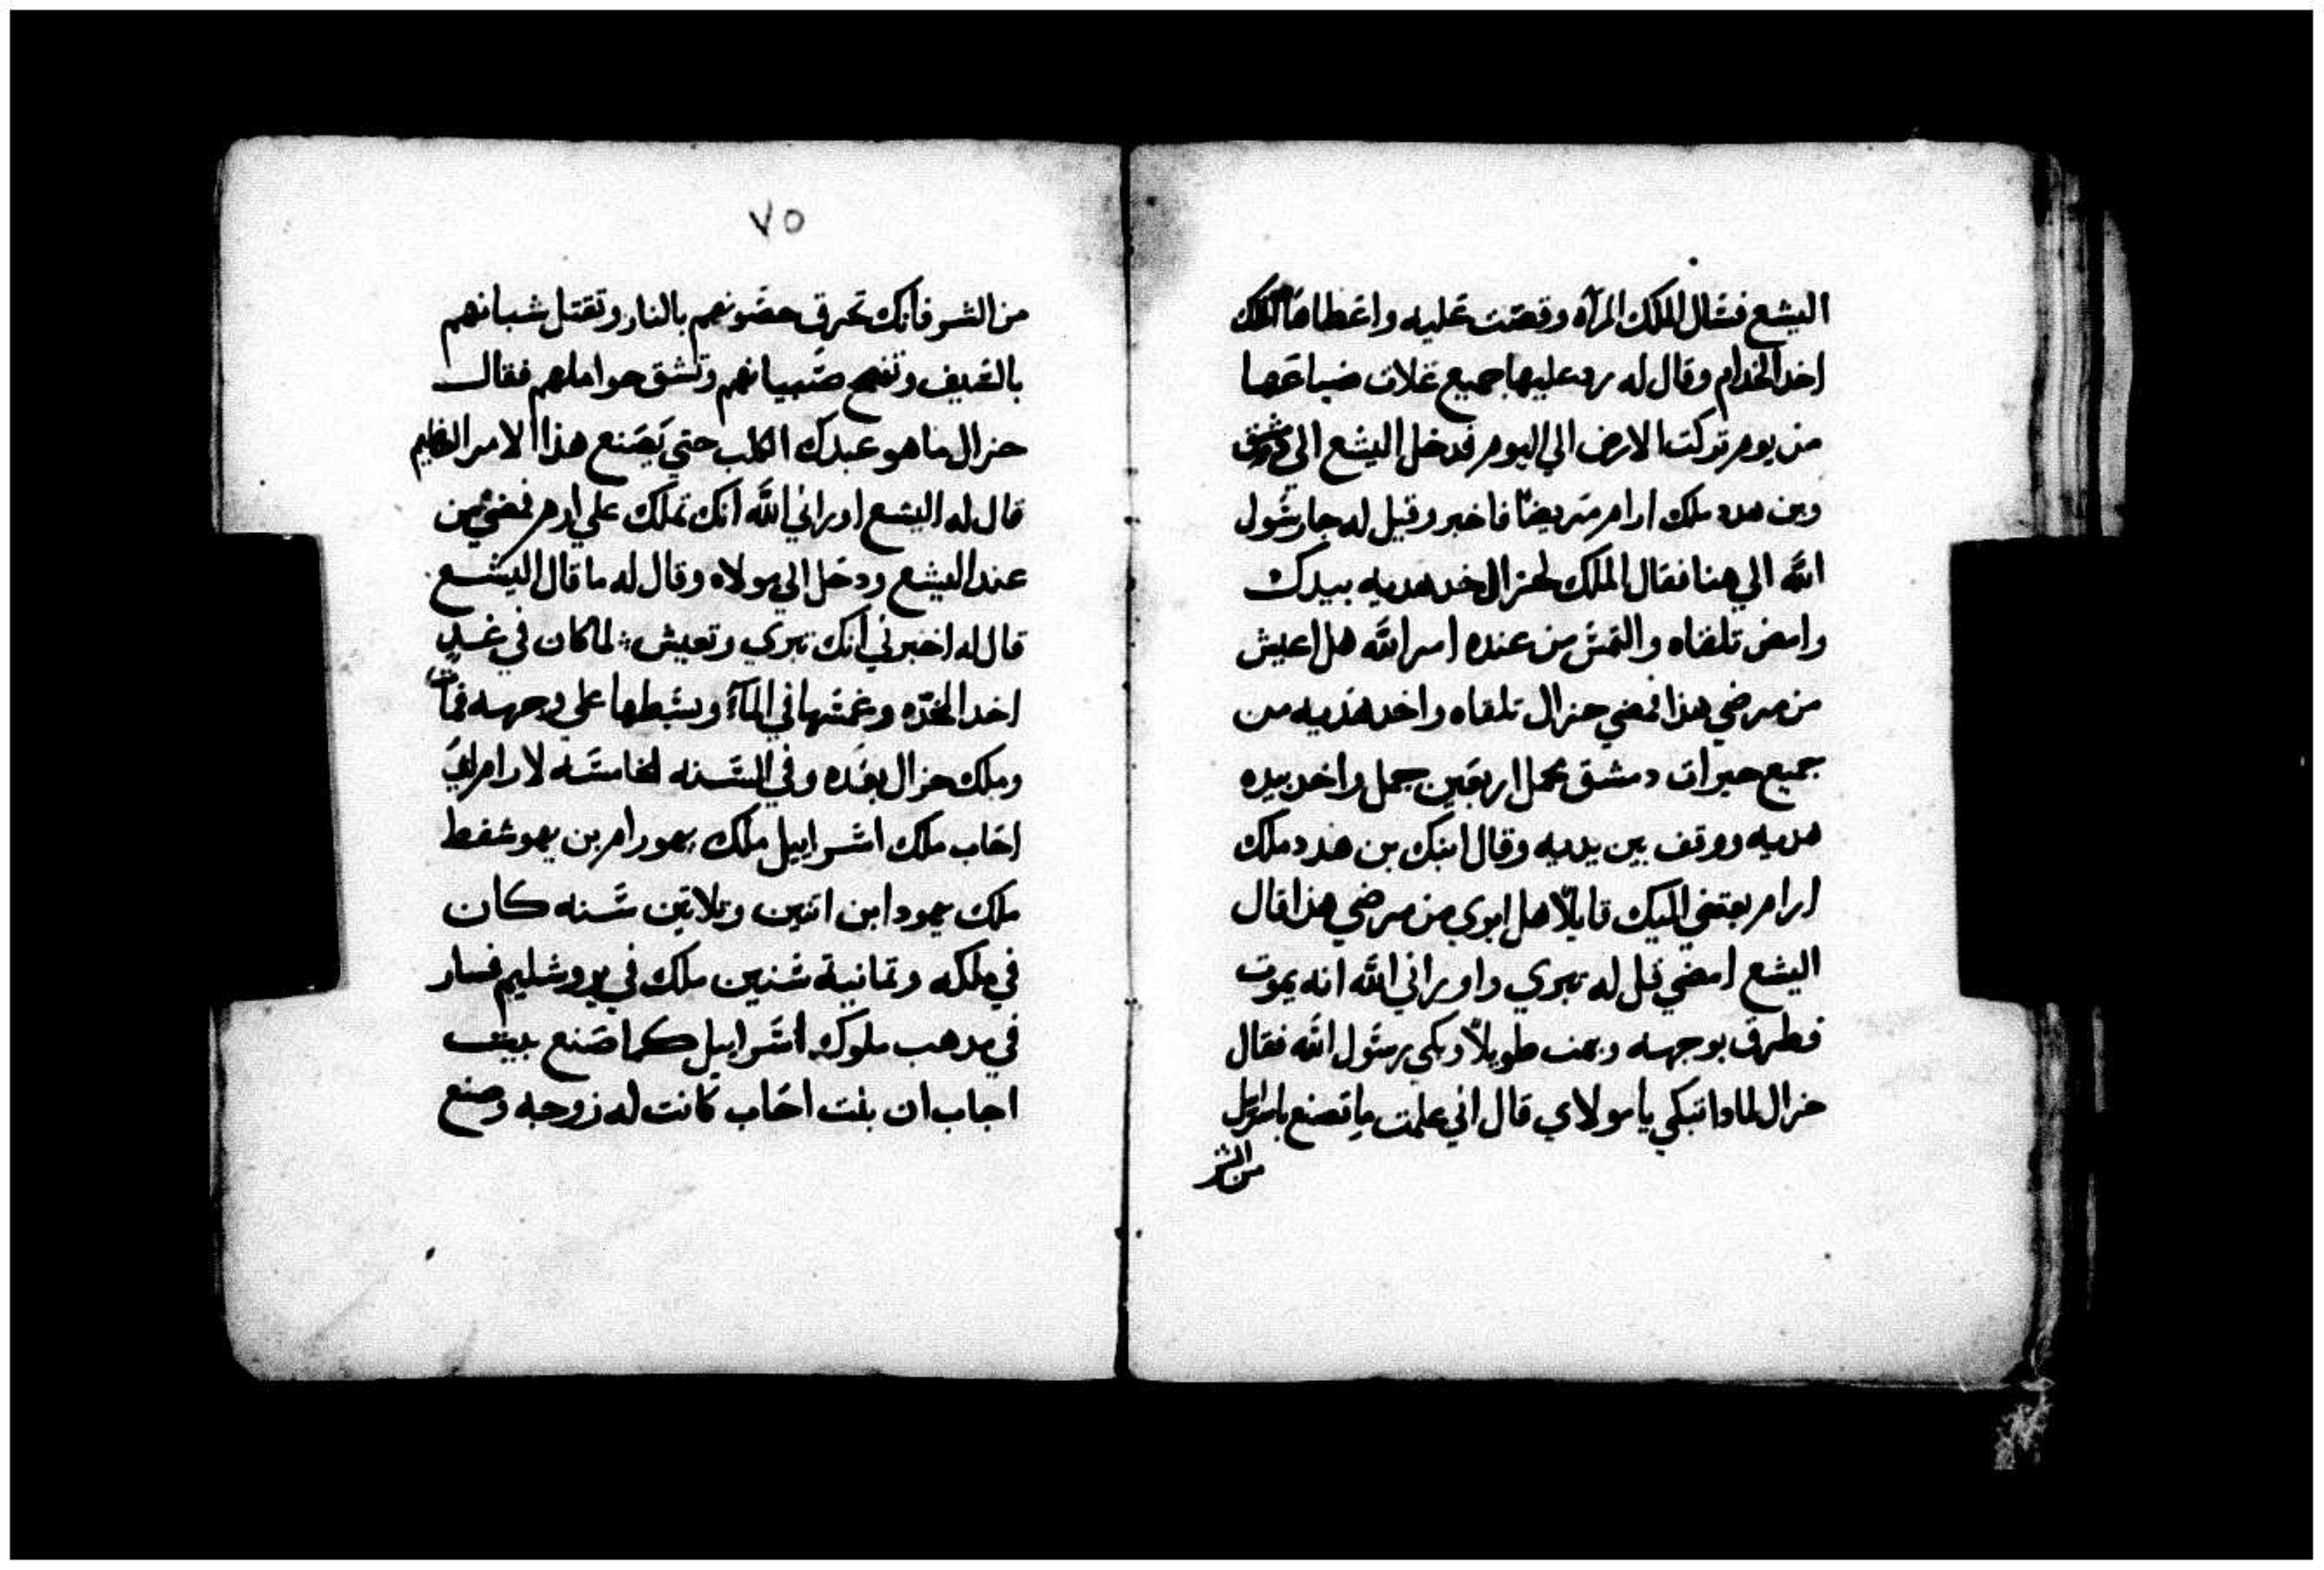 اليشع فسال الملك المرآه وقصت عليه واعطاها الملك
اخد الخدام وقال له رد عليها جميع غلات ضياعها
من يوم تركت الارض الي اليوم فدخل اليشع الي دمشق
وبن هدد ملك ارام مريضاً فاخبر وقيل له جا رسول
الله الي هنا فقال الملك لحزال خد هديه بيدك
وامض تلقاه والتمس من عنده امر الله هل اعيش
من مرضي هذا فمضي حزال تلقاه واخد هديه من
جميع خيرات دمشق محمل اربعين جمل واخد بيده
هديه ووقف بين يديه وقال ابنك بن هدد ملك
ارام بعتني اليك قايلاً هل ابري من مرضي هذا قال
اليشع امضي قل له تبري واوراني الله انه يموت
فطرق بوجهه وبهت طويلاً وبكي رسول الله فقال
حزال لمادا تبكي يا مولاي قال اني علمت ما تصنع باسراييل
من الشر
٧٥
من الشر فانك تحرق حصونهم بالنار وتقتل شبانهم
بالسيف وتفسخ صبيانهم وتشق حواملهم فقال
حزال ما هو عبدك الكلب حتي يصنع هذا الامر العظيم
قال له اليشع اوراني الله انك تملك علي ادم فمضي من
عند اليشع ودخل الي مولاه وقال له ما قال اليشع
قال له اخبرني انك تبري وتعيش : لما كان في غد
اخد المخده وغمسها في المآء وبسطها علي وجهه فمات
وملك حزال بعده وفي السنه الخامسه لارام ابن
اخاب ملك اسراييل ملك يهورام بن يهوشفط
ملك يهودا ابن اتنين وتلاتين سنه كان
في ملكه وتمانية سنين ملك في يروشليم فسار
في مدهب ملوك اسراييل كما صنع بيت
اخاب ان بنت اخاب كانت له زوجه وصنع